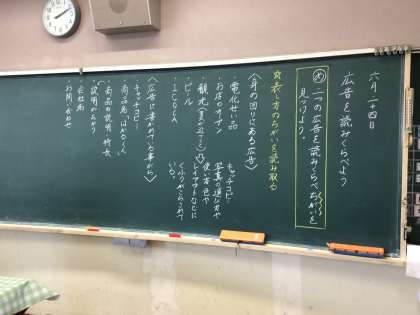 六月二十四日
広告を読みくらべよう
め 二つの広告を読みくらべちがいを
見つけよう。
表し方のちがいを読み取る
〈身の回りにある広告〉
・電化せい品
・お店のサイン
・観光
・ビール
キャッチコピー
写真の選び方や
使い方、色や
レイアウトなどに
くふうがこらされて
いる。
〈広告に書かれている事がら〉
・キャッチコピー
・商品名
・商品の説明 特長
・会社名
・お問い合わせ